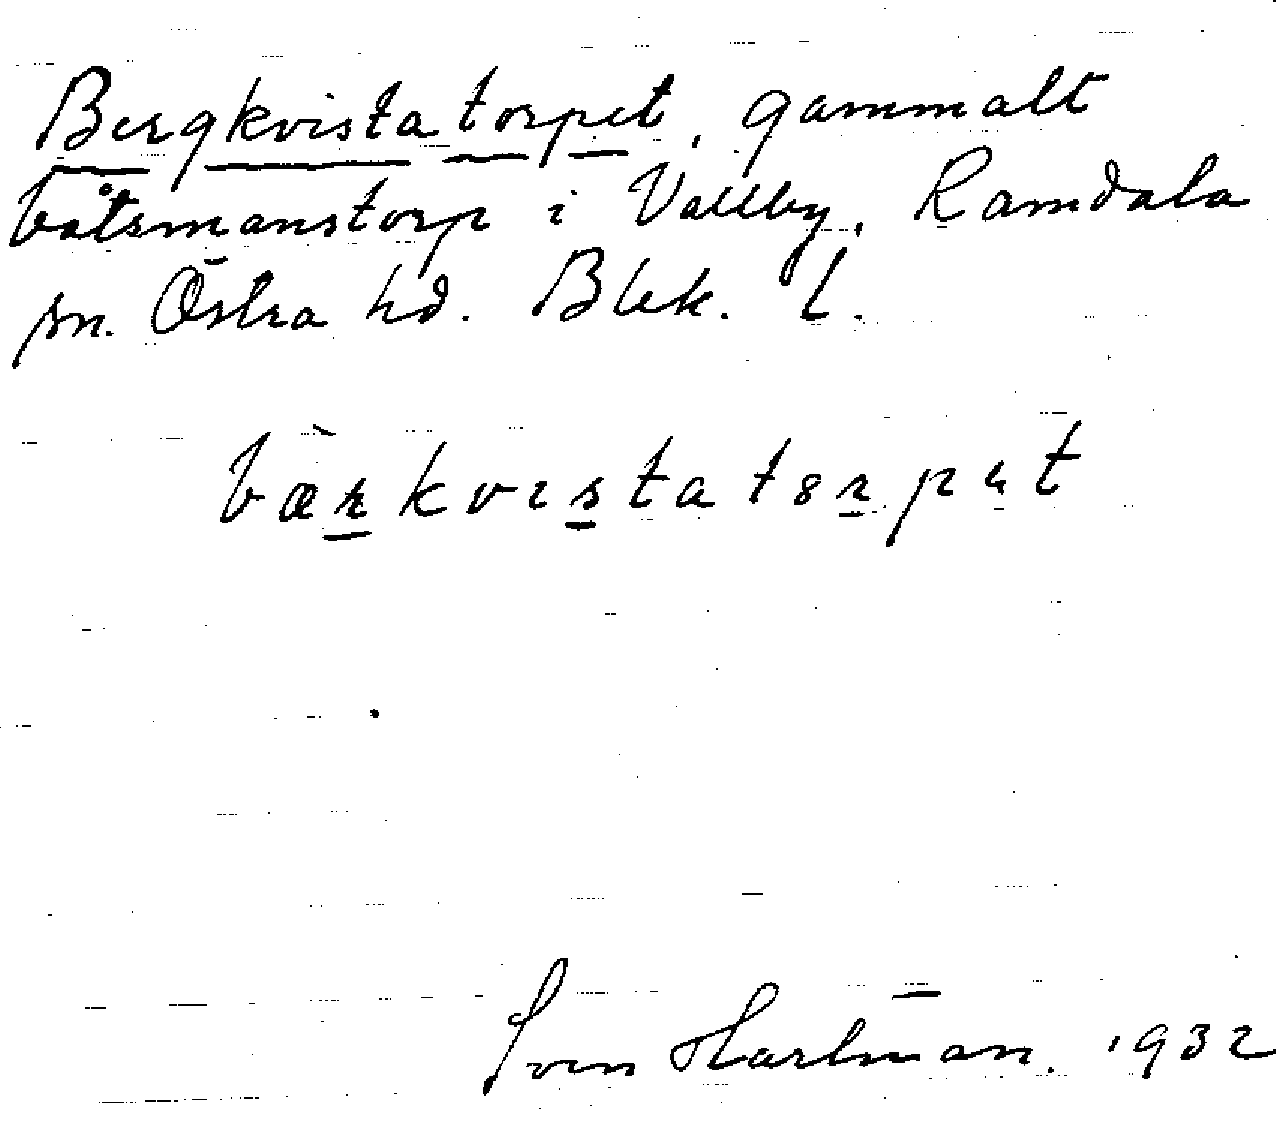 Bergkvistatorpet, gammalt
båtsmanstorp i Vallby, Ramdala
sn. Östra hd. Blek. l.
bærkvɪstatɵrpət
Sven Hartman. 1932